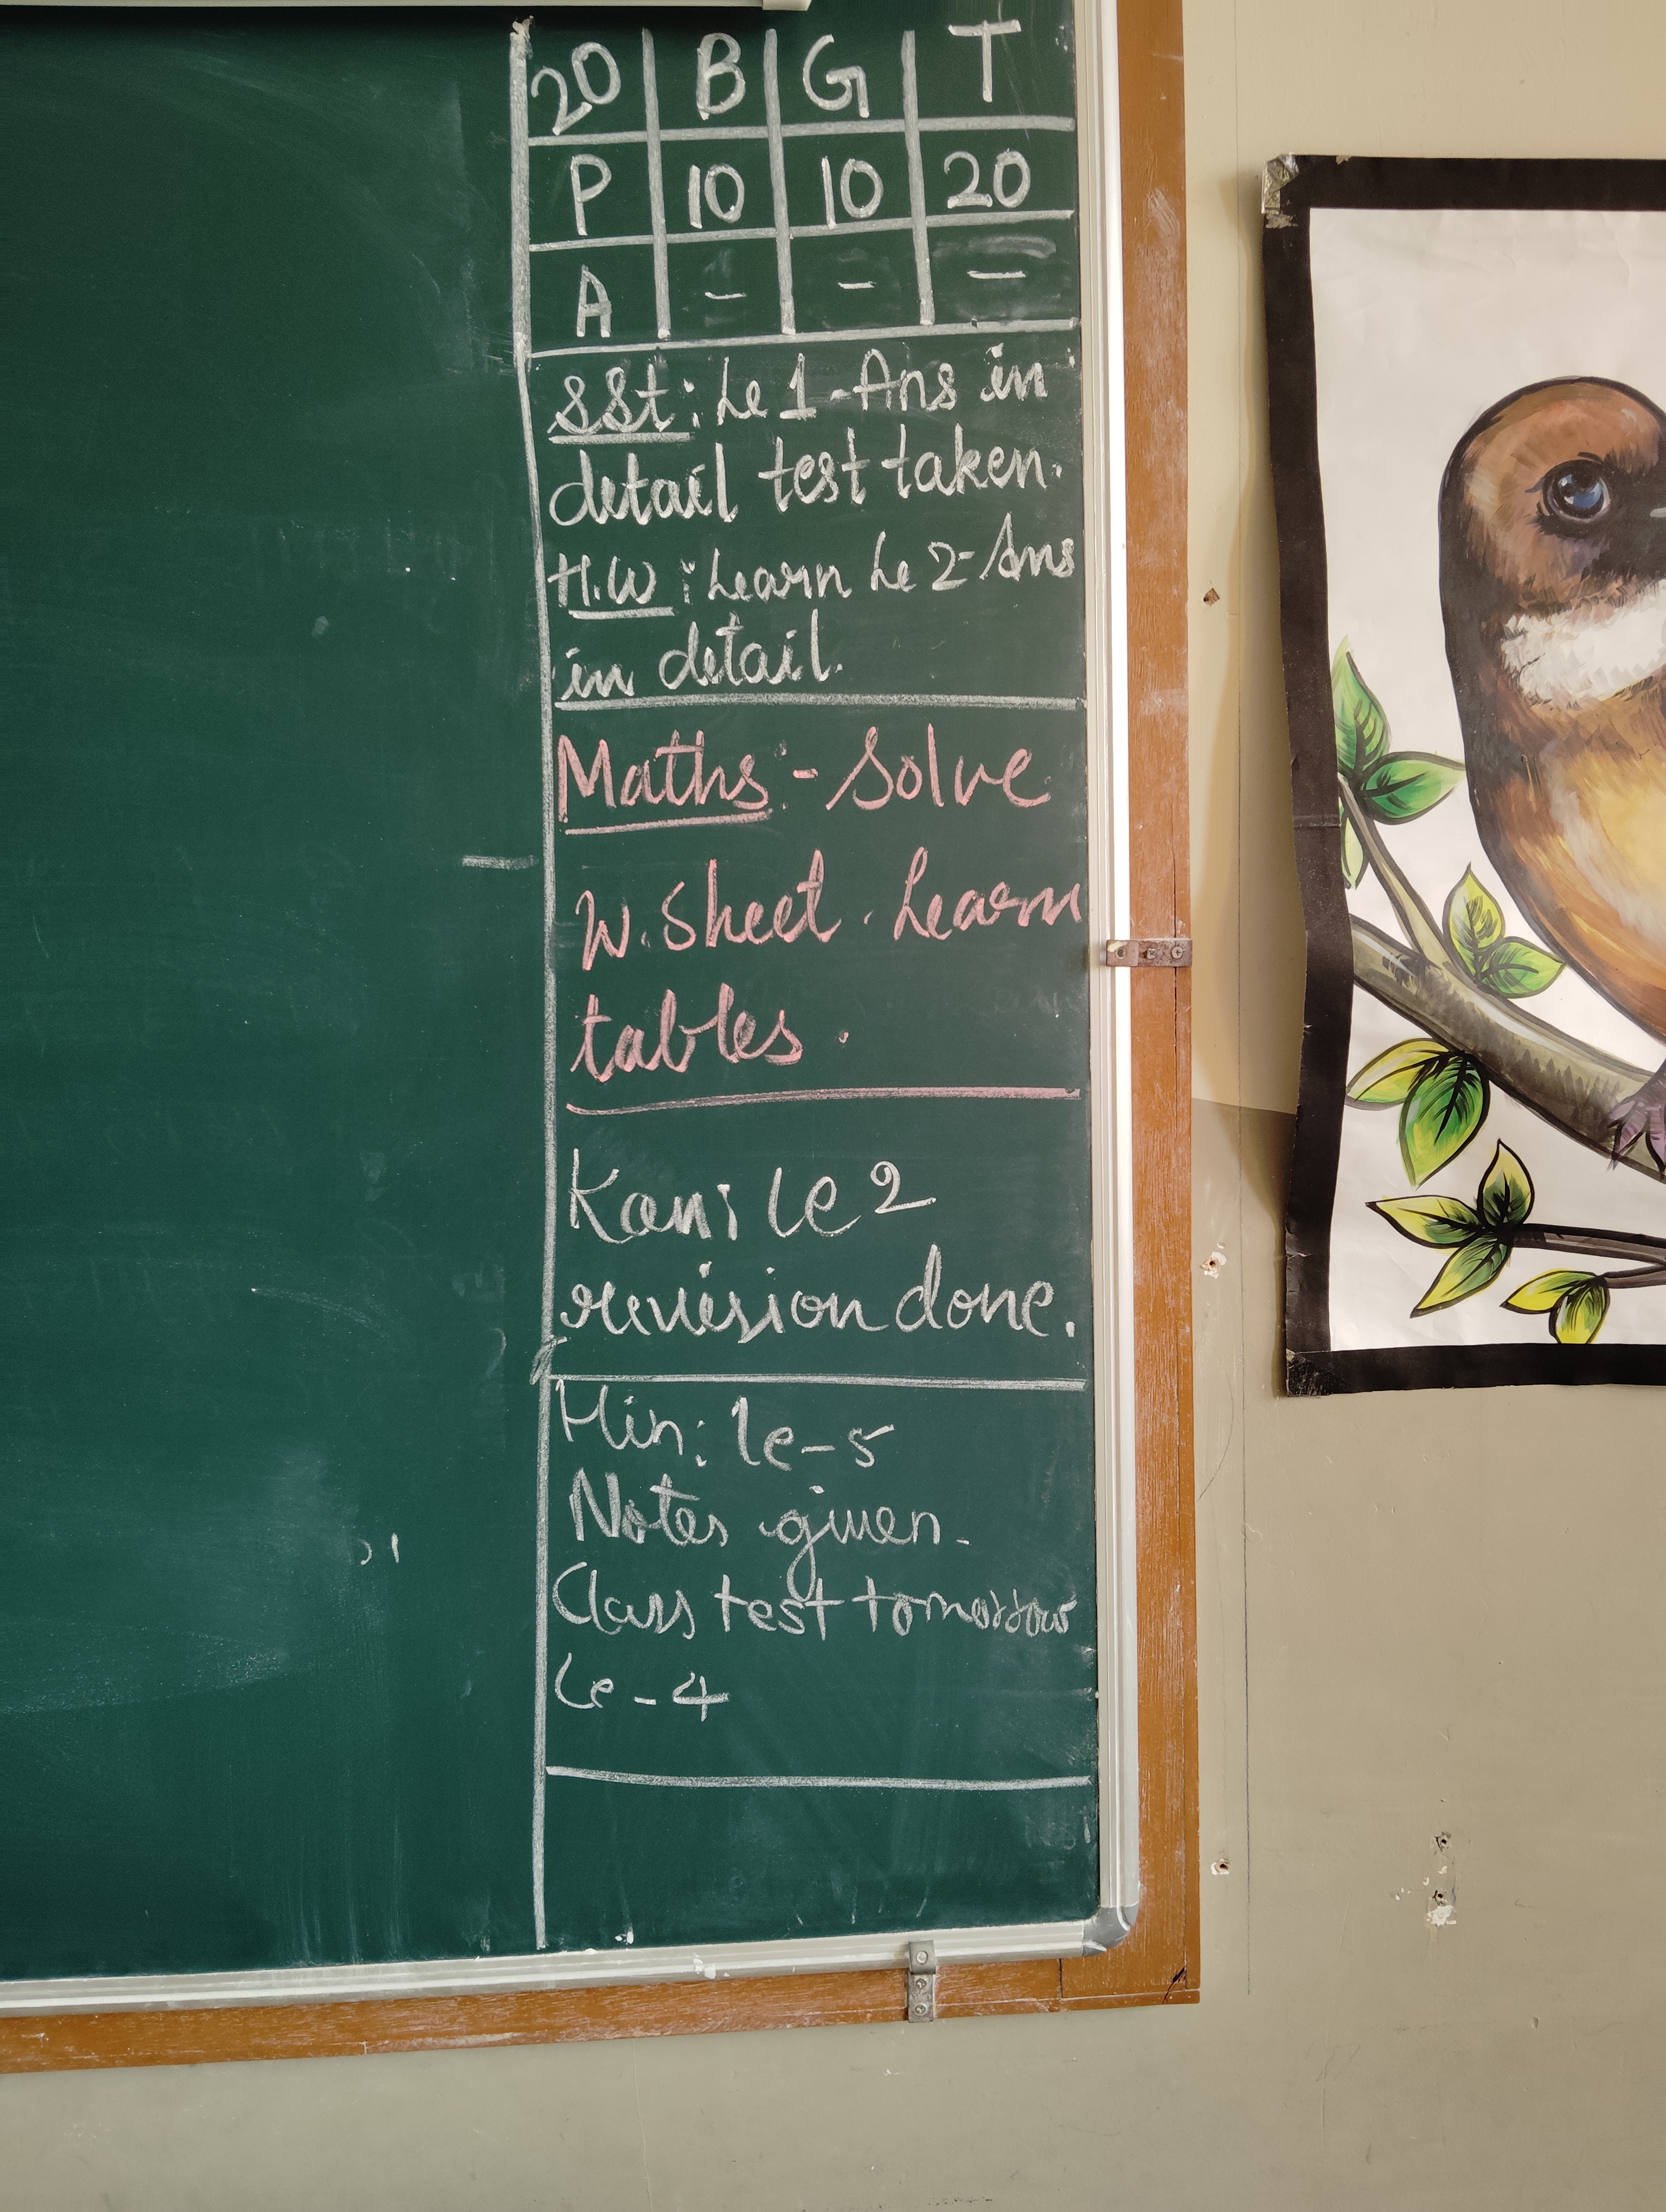 20 B G T
P 10 10 20
A - - -
SSt: Le 1-Ans in
detail test taken.
H.W: Learn Le 2-Ans
in detail.
Maths:- Solve
W.Sheet. Learn
tables.
Kan: le 2
revision done.
Hin: le-5
Notes given.
Class test tomorrow
Le-4